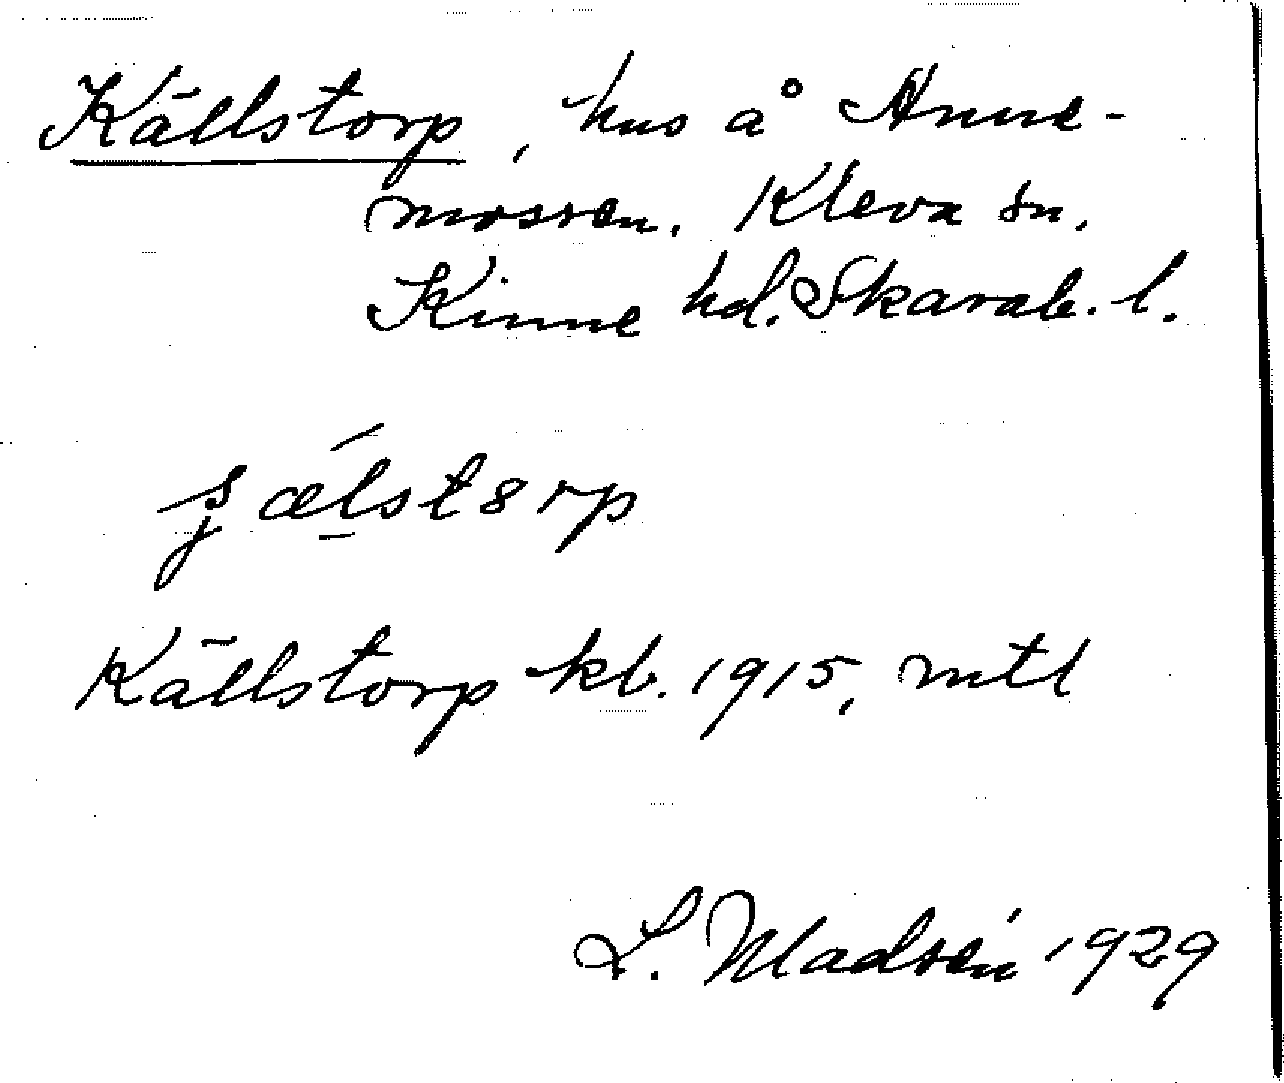 Källstorp, hus å Änne-
mossen. Kleva sn.
Kinne hd. Skarab. l.
Källstorp kb. 1915, mtl
L. Madsén 1929